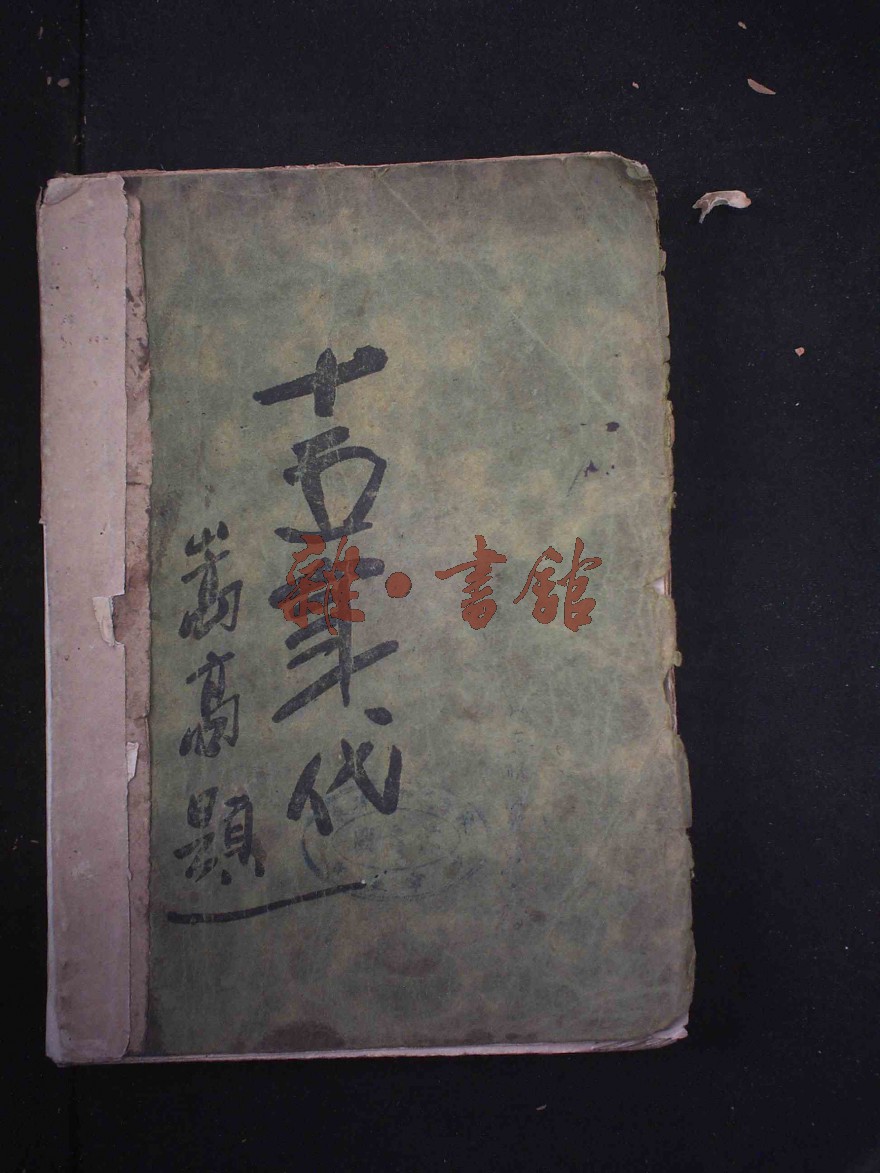 十五年代
嵩高題
雜·書館